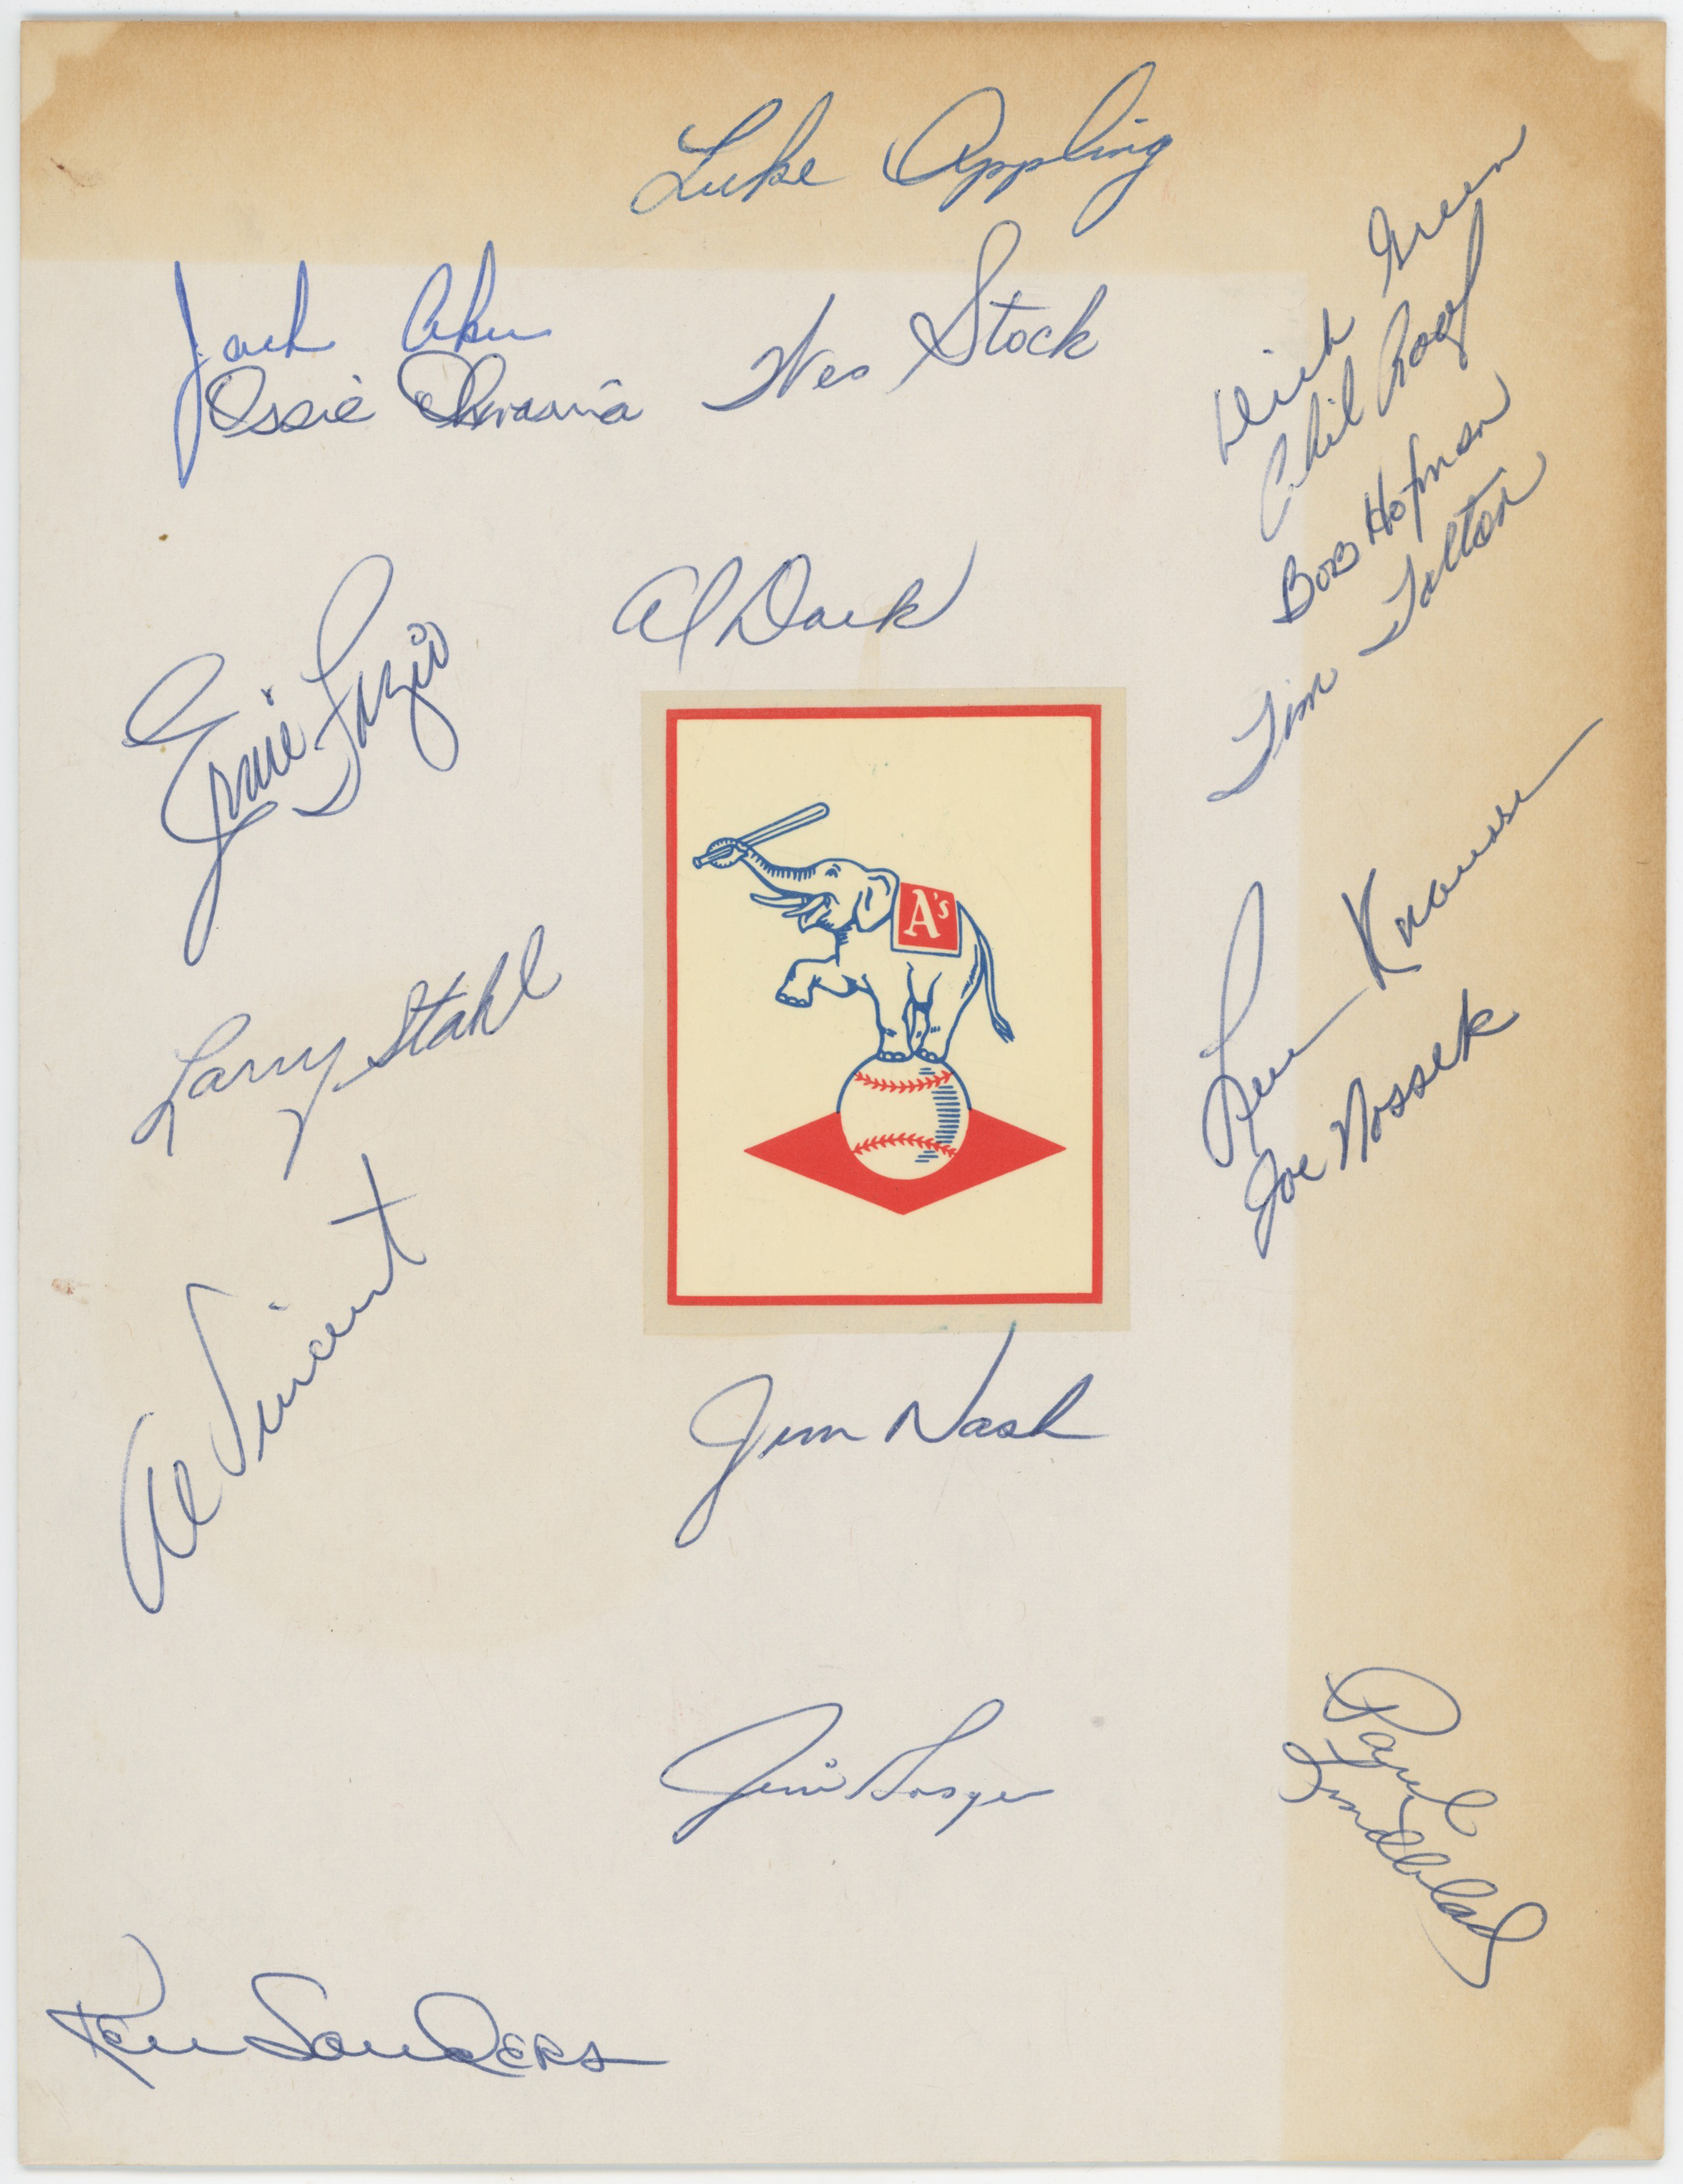 Luke Appling
Jack Aker
Wes Stock
Ossie Chavarria
Dick Green
Phil Roof
Bob Hofman
Tim Talton
Al Dark
Ernie Fazio
A's
Lew Krausse
Joe Nossek
Larry Stahl
Al Vincent
Jim Nash
Jim Gosger
Paul Lindblad
Ken Sanders